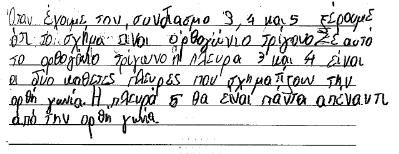 Όταν έχουμε τον συνδιασμο 3, 4 και 5 ξέρουμε
ότι το σχήμα είναι ορθογώνιο τρίγωνο Σε αυτό
το ορθογώνιο τρίγωνο η πλευρα 3 και 4 είναι
οι δυο καθετες πλευρές που σχηματίζουν την
ορθή γωνία. Η πλευρά 5 θα είναι πάντα απέναντι
από την ορθή γωνία